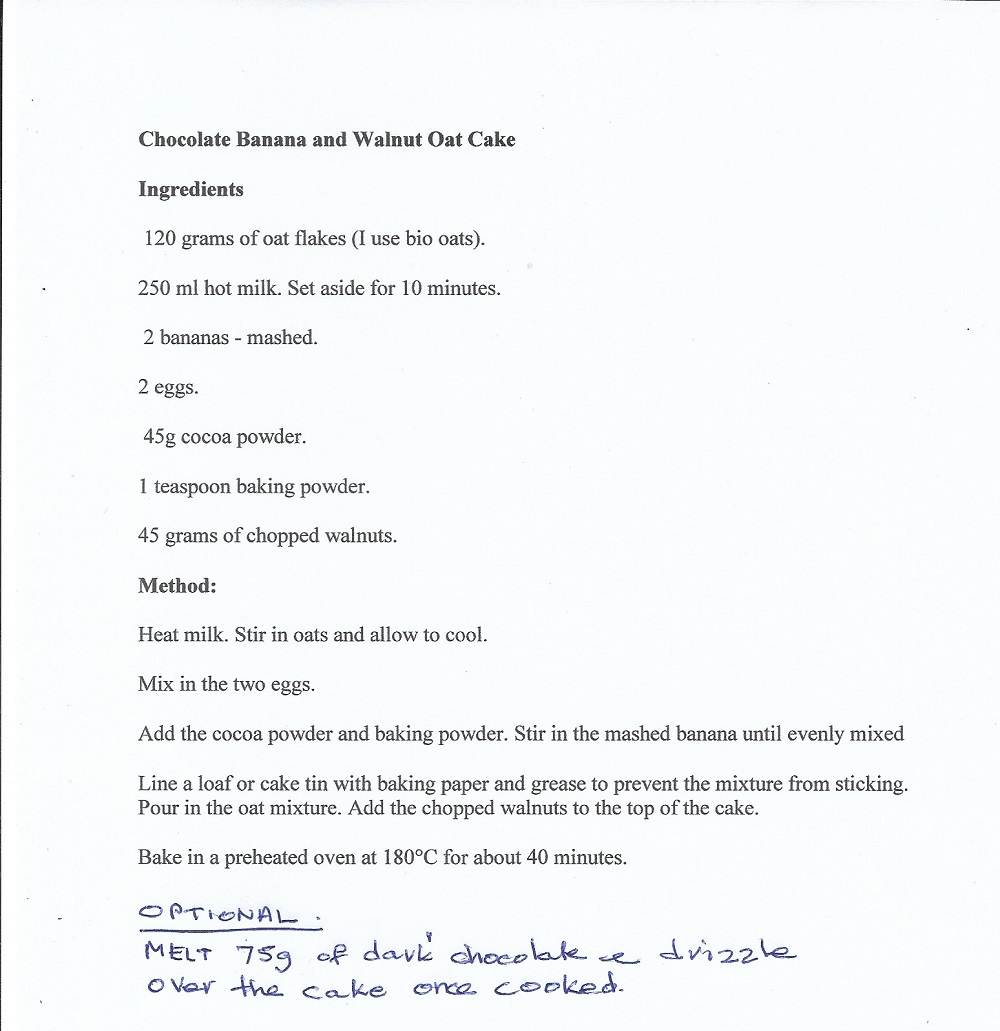 Chocolate Banana and Walnut Oat Cake
Ingredients
120 grams of oat flakes (I use bio oats).
250 ml hot milk. Set aside for 10 minutes.
2 bananas - mashed.
2 eggs.
45g cocoa powder.
1 teaspoon baking powder.
45 grams of chopped walnuts.
Method:
Heat milk. Stir in oats and allow to cool.
Mix in the two eggs.
Add the cocoa powder and baking powder. Stir in the mashed banana until evenly mixed
Line a loaf or cake tin with baking paper and grease to prevent the mixture from sticking.
Pour in the oat mixture. Add the chopped walnuts to the top of the cake.
Bake in a preheated oven at 180°C for about 40 minutes.
OPTIONAL.
MELT 75g of dark chocolate & drizzle
over the cake once cooked.